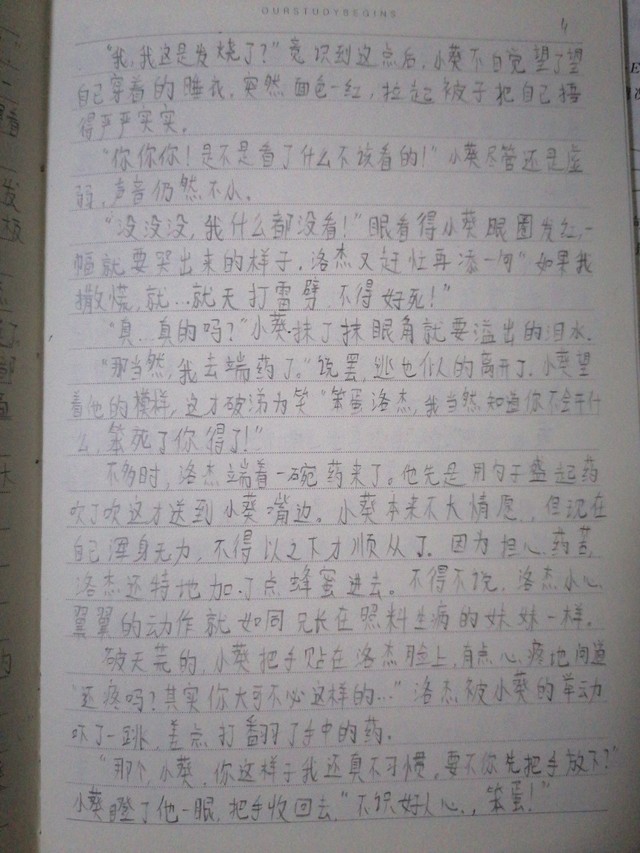 OURSTUDYBEGINS
4
"我,我这是发烧了?"意识到这点后,小葵不自觉望了望
自己穿着的睡衣,突然面色一红,拉起被子把自己捂
得严严实实。
"你你你!是不是看了什么不该看的!"小葵尽管还是虚
弱,声音仍然不小。
"没没没,我什么都没看!"眼看得小葵眼圈发红,一
幅就要哭出来的样子,洛杰又赶忙再添一句"如果我
撒慌,就…就天打雷劈,不得好死!"
"真…真的吗?"小葵抹了抹眼角就要溢出的泪水.
"那当然,我去端药了。"说罢,逃也似的离开了.小葵望
着他的模样,这才破涕为笑"笨蛋洛杰,我当然知道你不会干什
么,笨死了你得了!"
不多时,洛杰端着一碗药来了。他先是用勺子盛起药
吹了吹这才送到小葵嘴边。小葵本来不大情愿,但现在
自己浑身无力,不得以之下才顺从了.因为担心药苦,
洛杰还特地加了点蜂蜜进去。不得不说,洛杰小心
翼翼的动作就如同兄长在照料生病的妹妹一样。
破天荒的,小葵把手贴在洛杰脸上,有点心疼地问道
"还疼吗?其实你大可不必这样的…"洛杰被小葵的举动
吓了一跳,差点打翻了手中的药.
"那个,小葵,你这样子我还真不习惯,要不你先把手放下?"
小葵瞪了他一眼,把手收回去,"不识好人心,笨蛋!"